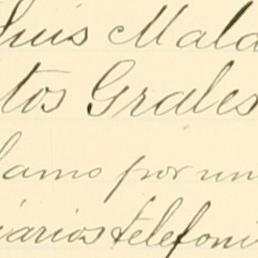 Luis Mala
tos Grales
lamo por un
iarios telefoni